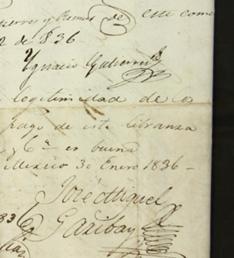 y Ramos de este come
2 de 1836.
Ygnacio Gutierrez
legitimidad de
pago de esta libranza
y Cª es buena
Mexico 30 Enero 1836
José Miguel
Garibay